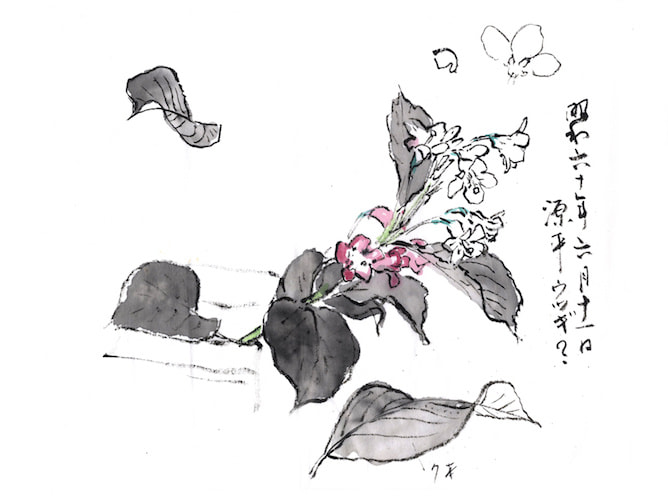 昭和六十年六月十一日
源平ウツギ?